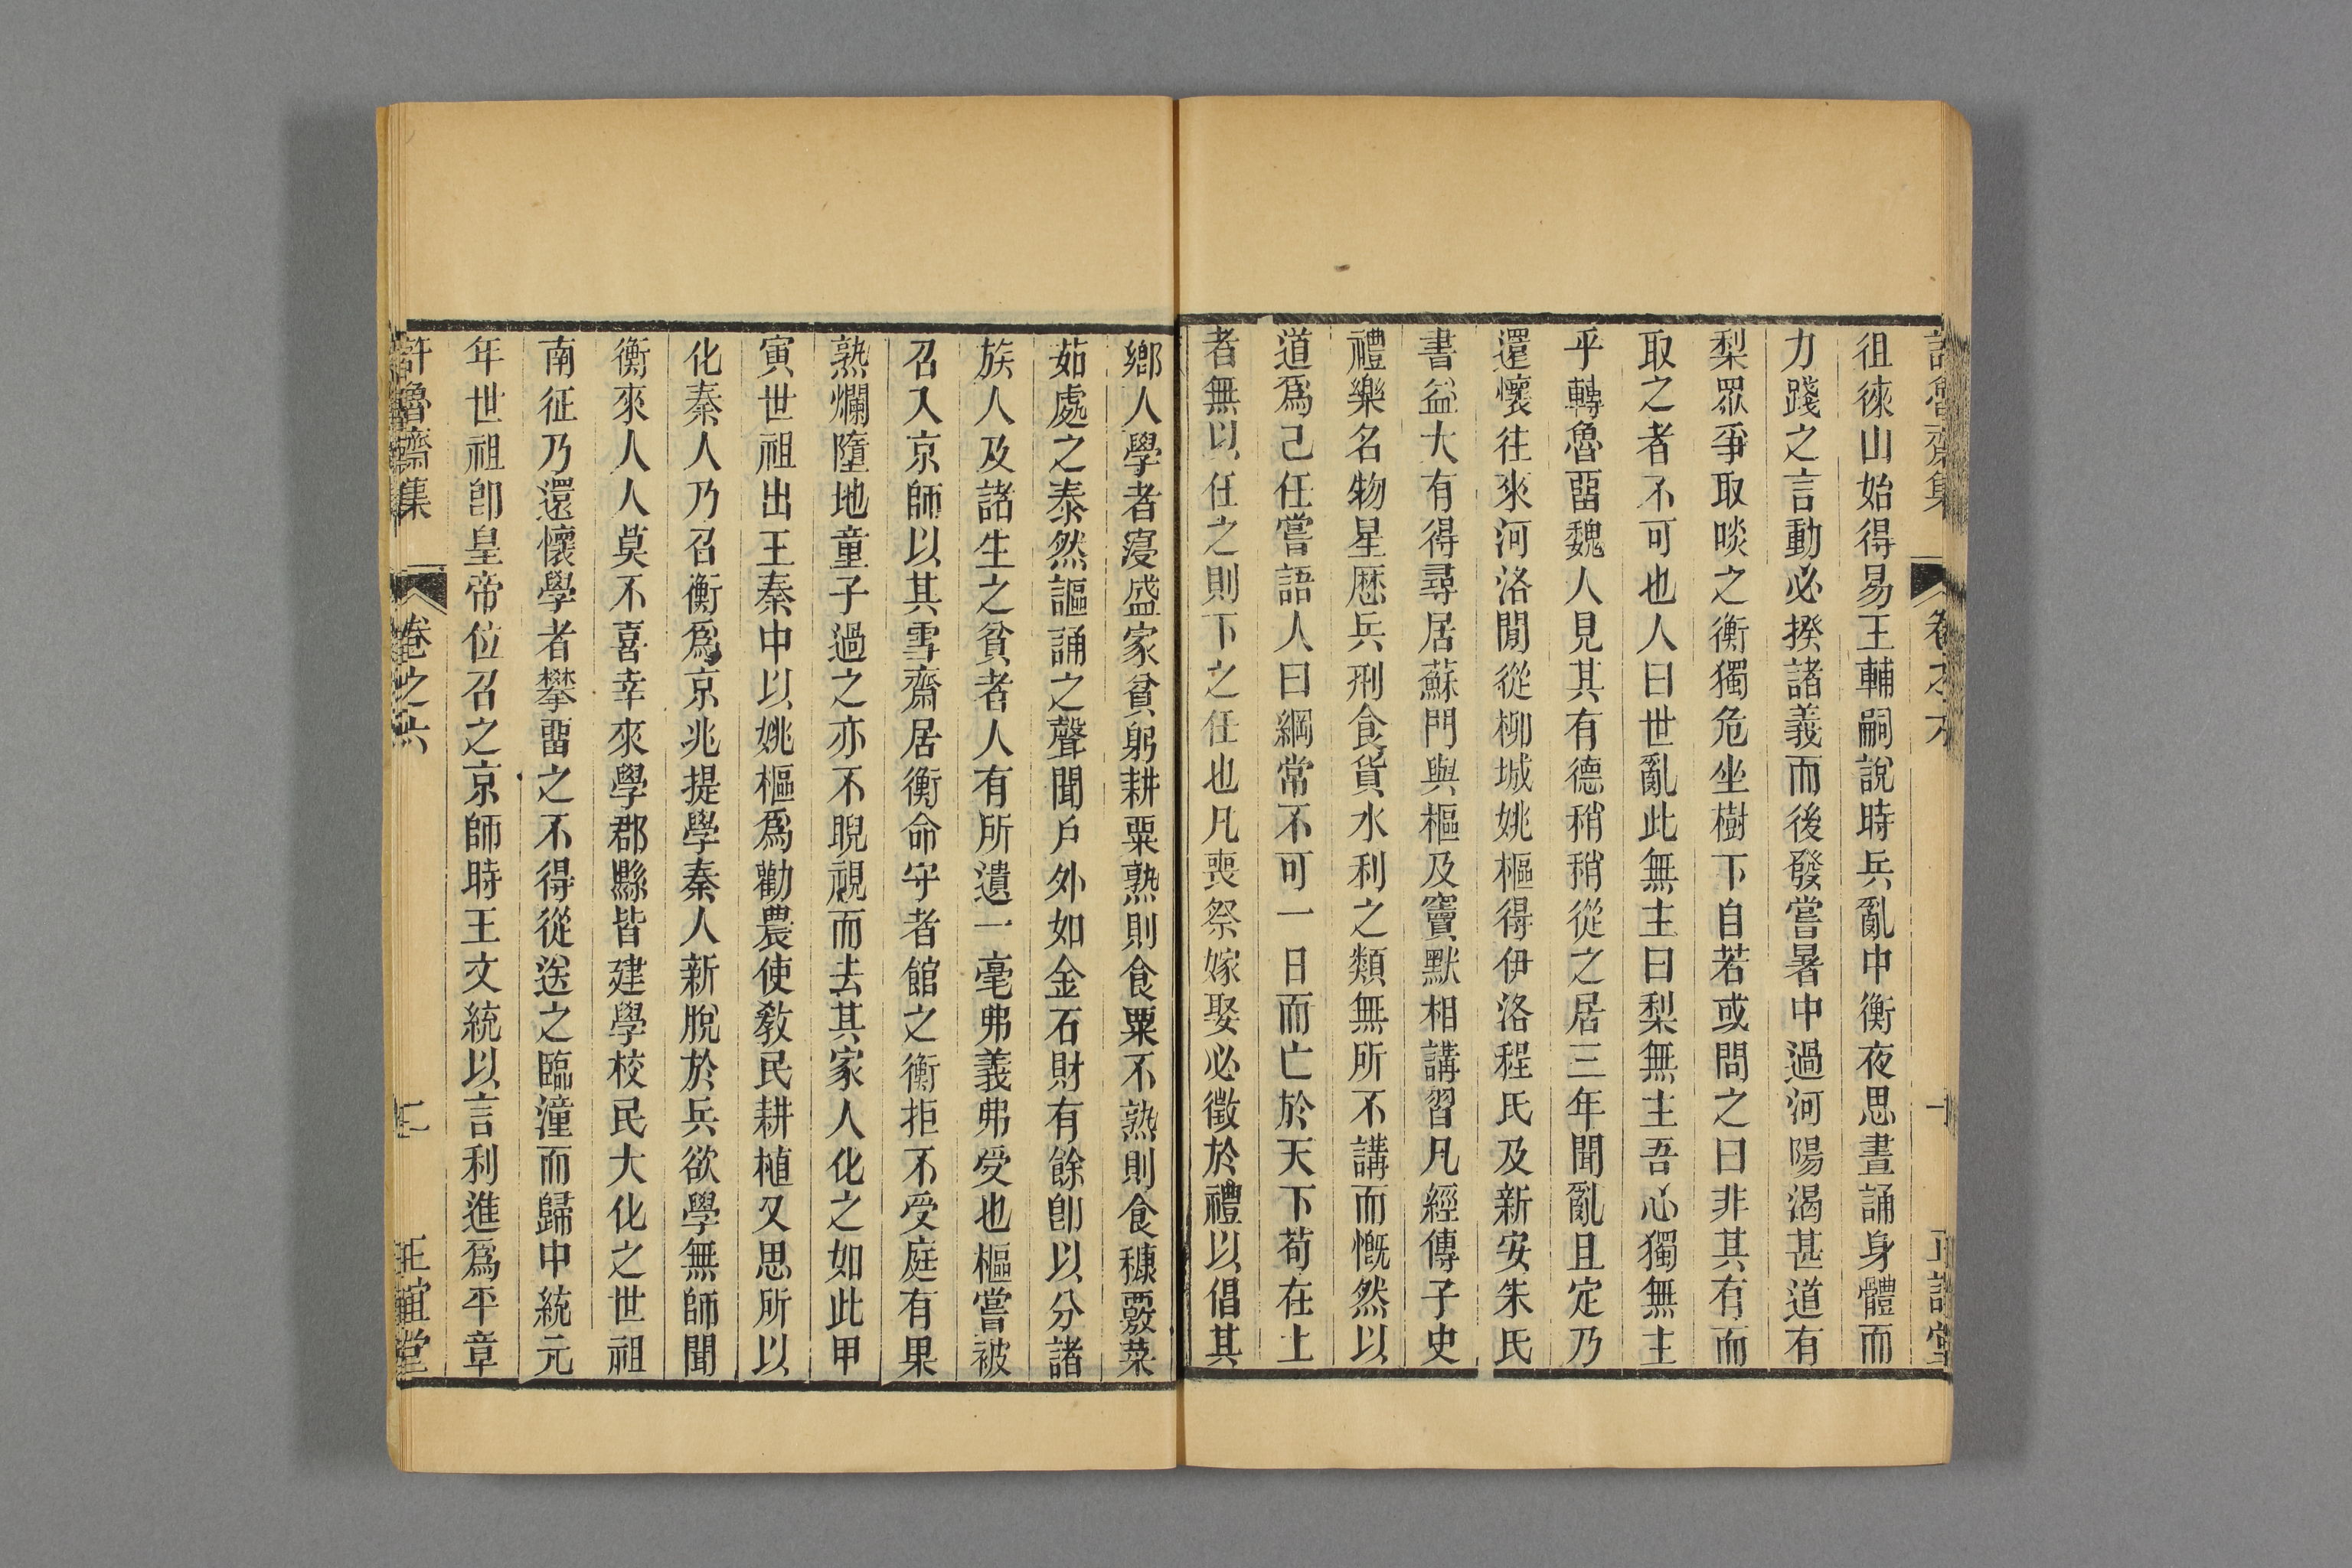 許魯齋集 卷之六 一 正誼堂
徂徠山始得易王輔嗣說時兵亂中衡夜思晝誦身體而
力踐之言動必揆諸義而後發嘗暑中過河陽渴甚道有
梨眾爭取啖之衡獨危坐樹下自若或問之曰非其有而
取之者不可也人曰世亂此無主曰梨無主吾心獨無主
乎轉魯留魏人見其有德稍稍從之居三年聞亂且定乃
還懷往來河洛閒從柳城姚樞得伊洛程氏及新安朱氏
書益大有得尋居蘇門與樞及竇默相講習凡經傳子史
禮樂名物星厯兵刑食貨水利之類無所不講而慨然以
道爲己任嘗語人曰綱常不可一日而亡於天下苟在上
者無以任之則下之任也凡喪祭嫁娶必徵於禮以倡其
鄉人學者寖盛家貧躬耕粟熟則食粟不熟則食糠覈菜
茹處之泰然謳誦之聲聞戶外如金石財有餘卽以分諸
族人及諸生之貧者人有所遺一毫弗義弗受也樞嘗被
召入京師以其雪齋居衡命守者館之衡拒不受庭有果
熟爛墮地童子過之亦不睨視而去其家人化之如此甲
寅世祖出王秦中以姚樞爲勸農使敎民耕植又思所以
化秦人乃召衡爲京兆提學秦人新脫於兵欲學無師聞
衡來人人莫不喜幸來學郡縣皆建學校民大化之世祖
南征乃還懷學者攀留之不得從送之臨潼而歸中統元
年世祖卽皇帝位召之京師時王文統以言利進爲平章
許魯齋集 卷之六 二 正誼堂